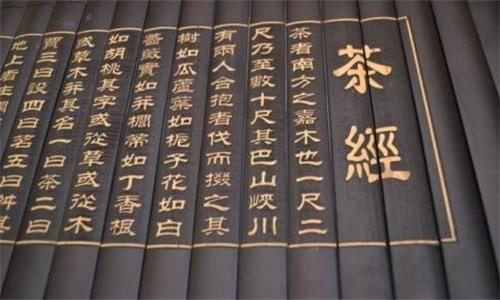 茶經
茶者南方之嘉木也一尺二
尺乃至數十尺其巴山峽川
有兩人合抱者伐而掇之其
樹如瓜蘆葉如梔子花如白
薔薇實如栟櫚蒂如丁香根
如胡桃其字或從草或從木
或草木并其名一曰茶二曰
賈三曰設四曰名五曰舛其
地上者生